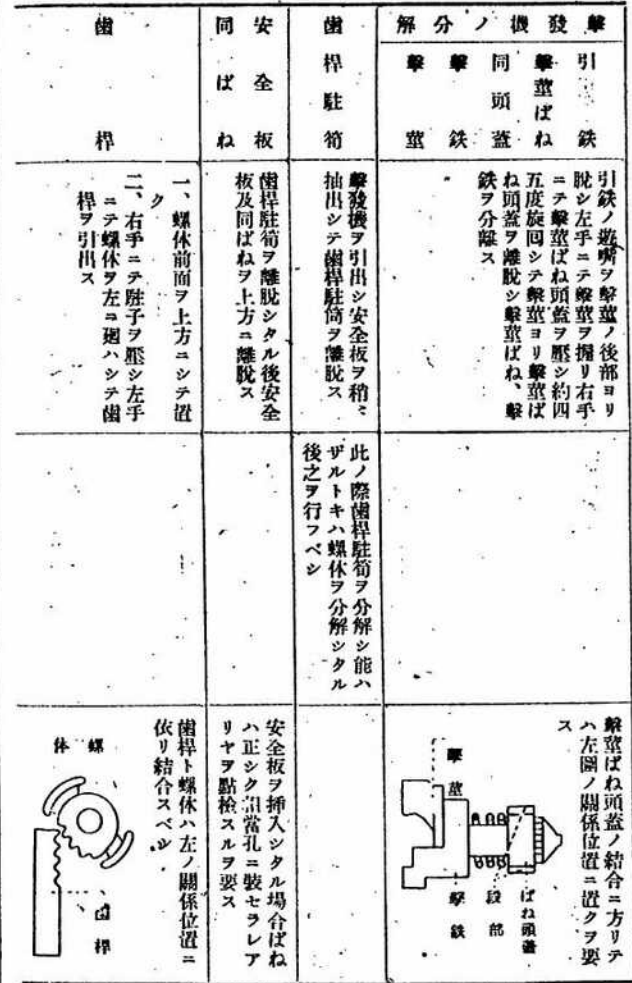 擊發機ノ分解
引鉄
擊莖ばね
同頭蓋
擊鉄
擊莖
引鉄ノ遊嘴ヲ擊莖ノ後部ヨリ
脫シ左手ニテ擊莖ヲ握リ右手
ニテ擊莖ばね頭蓋ヲ壓シ約四
五度旋回シテ擊莖ヨリ擊莖ば
ね頭蓋ヲ離脫シ擊莖ばね、擊
鉄ヲ分離ス
擊莖ばね頭蓋ノ結合ニ方リテ
ハ左圖ノ關係位置ニ置クヲ要
ス
ばね頭蓋
段部
擊鉄
擊莖
歯桿駐筍
擊發機ヲ引出シ安全板ヲ稍〻
抽出シテ歯桿駐筍ヲ離脫ス
此ノ際歯桿駐筍ヲ分解シ能ハ
ザルトキハ螺体ヲ分解シタル
後之ヲ行フベシ
安全板
同ばね
歯桿駐筍ヲ離脫シタル後安全
板及同ばねヲ上方ニ離脫ス
安全板ヲ挿入シタル場合ばね
ハ正シク常孔ニ裝セラレア
リヤヲ點檢スルヲ要ス
歯桿
一、螺体前面ヲ上方ニシテ置
ク
二、右手ニテ駐子ヲ壓シ左手
ニテ螺体ヲ左ニ廻ハシテ歯
桿ヲ引出ス
歯桿ト螺体ハ左ノ關係位置ニ
依リ結合スベシ
螺体
歯桿